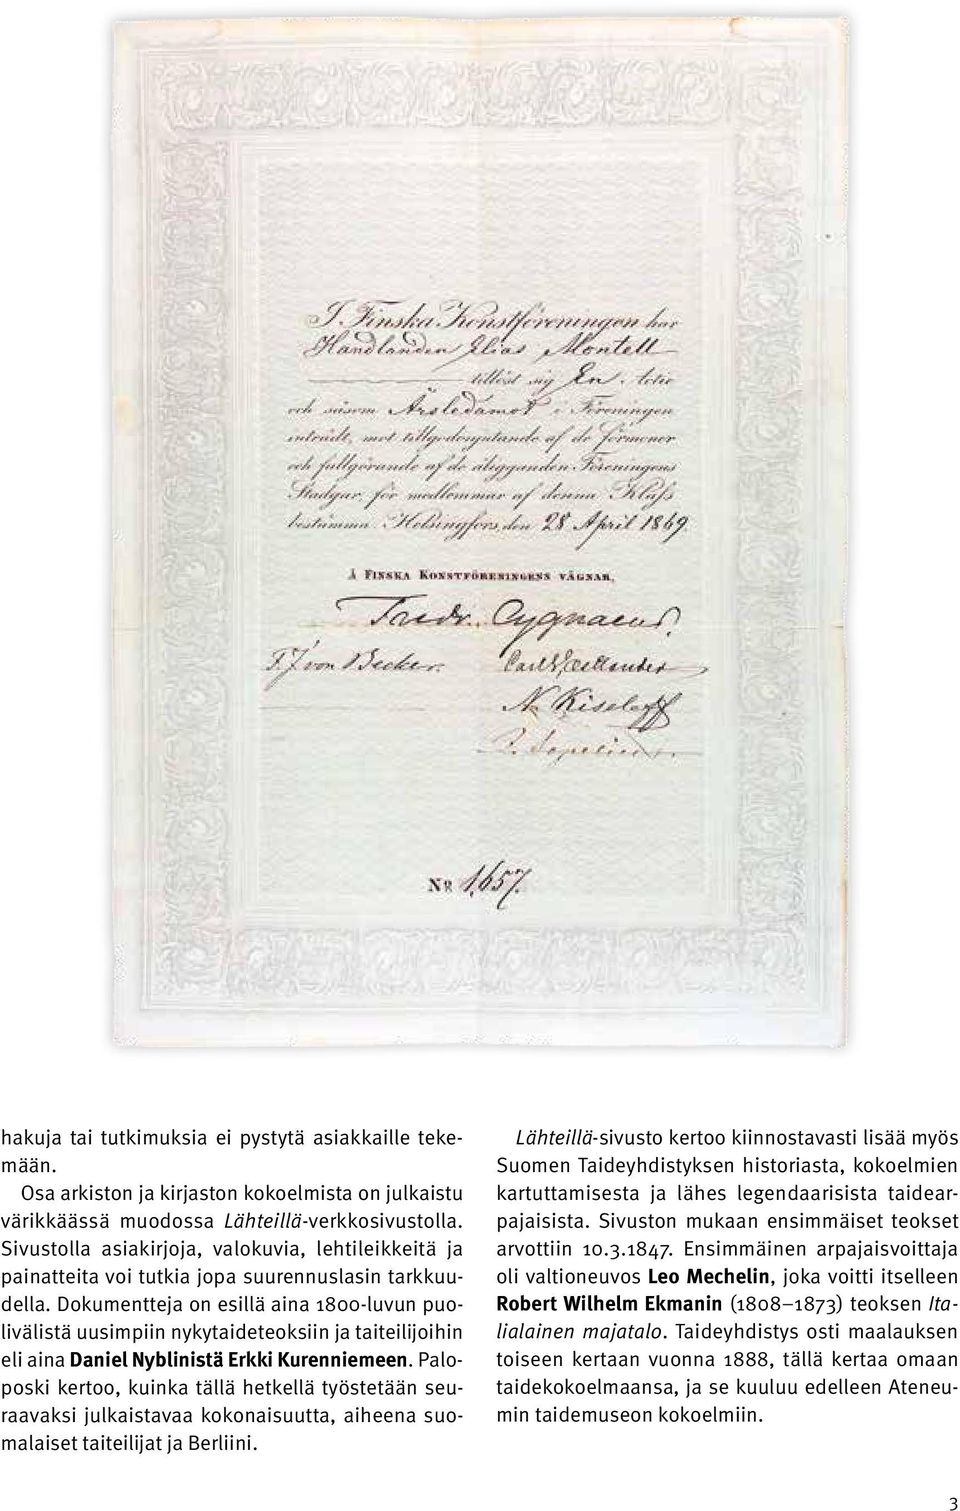 I Finska Konstföreningen har
Handlanden Elias Montell
tillöst sig En Actie
och såsom Årsledamot i Föreningen
inträdt, mot tillgodonjutande af de förmoner
och fullgörande af de åligganden Föreningens
Stadgar, för medlemmar af denna Klass
bestämma. Helsingfors, den 28 April 1869.
Å FINSKA KONSTFÖRENINGENS VÄGNAR,
Fredr. Cygnaeus.
F. J. von Becker.
N. Kiseleff
Z. Topelius.
No 1,657.
hakuja tai tutkimuksia ei pystytä asiakkaille teke-
mään.
Osa arkiston ja kirjaston kokoelmista on julkaistu
värikkäässä muodossa Lähteillä-verkkosivustolla.
Sivustolla asiakirjoja, valokuvia, lehtileikkeitä ja
painatteita voi tutkia jopa suurennuslasin tarkkuu-
della. Dokumentteja on esillä aina 1800-luvun puo-
livälistä uusimpiin nykytaideteoksiin ja taiteilijoihin
eli aina Daniel Nyblinistä Erkki Kurenniemeen. Palo-
poski kertoo, kuinka tällä hetkellä työstetään seu-
raavaksi julkaistavaa kokonaisuutta, aiheena suo-
malaiset taiteilijat ja Berliini.
Lähteillä-sivusto kertoo kiinnostavasti lisää myös
Suomen Taideyhdistyksen historiasta, kokoelmien
kartuttamisesta ja lähes legendaarisista taidear-
pajaisista. Sivuston mukaan ensimmäiset teokset
arvottiin 10.3.1847. Ensimmäinen arpajaisvoittaja
oli valtioneuvos Leo Mechelin, joka voitti itselleen
Robert Wilhelm Ekmanin (1808–1873) teoksen Ita-
lialainen majatalo. Taideyhdistys osti maalauksen
toiseen kertaan vuonna 1888, tällä kertaa omaan
taidekokoelmaansa, ja se kuuluu edelleen Ateneu-
min taidemuseon kokoelmiin.
3